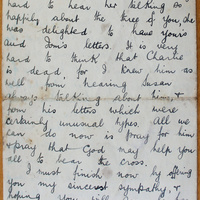 hard to hear her talking so
happily about the three of you, she
was delighted to have yours
and Dom's letters. It is very
hard to think that Charlie
is dead, for I knew him so
well from hearing Susan
always talking about him, &
from his letters which were
certainly unusual types. All we
can do now is pray for him
& pray that God may help you
all to bear the cross.
I must finish now by offering
you my sincerest sympathy, &
hoping you will